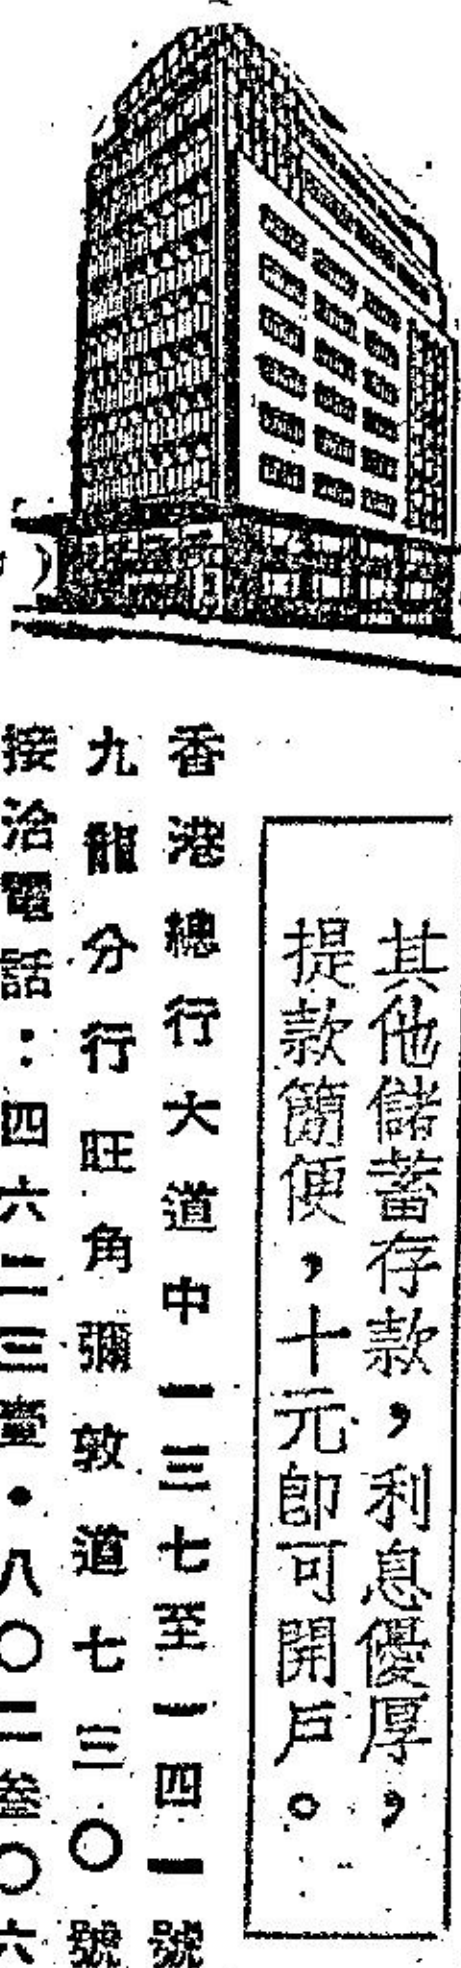 其他儲蓄存款，利息優厚，
提款簡便，十元即可開戶。
香港總行大道中一三七至一四一號
九龍分行旺角彌敦道七三〇號
接洽電話：四六二三壹·八〇二叁〇六